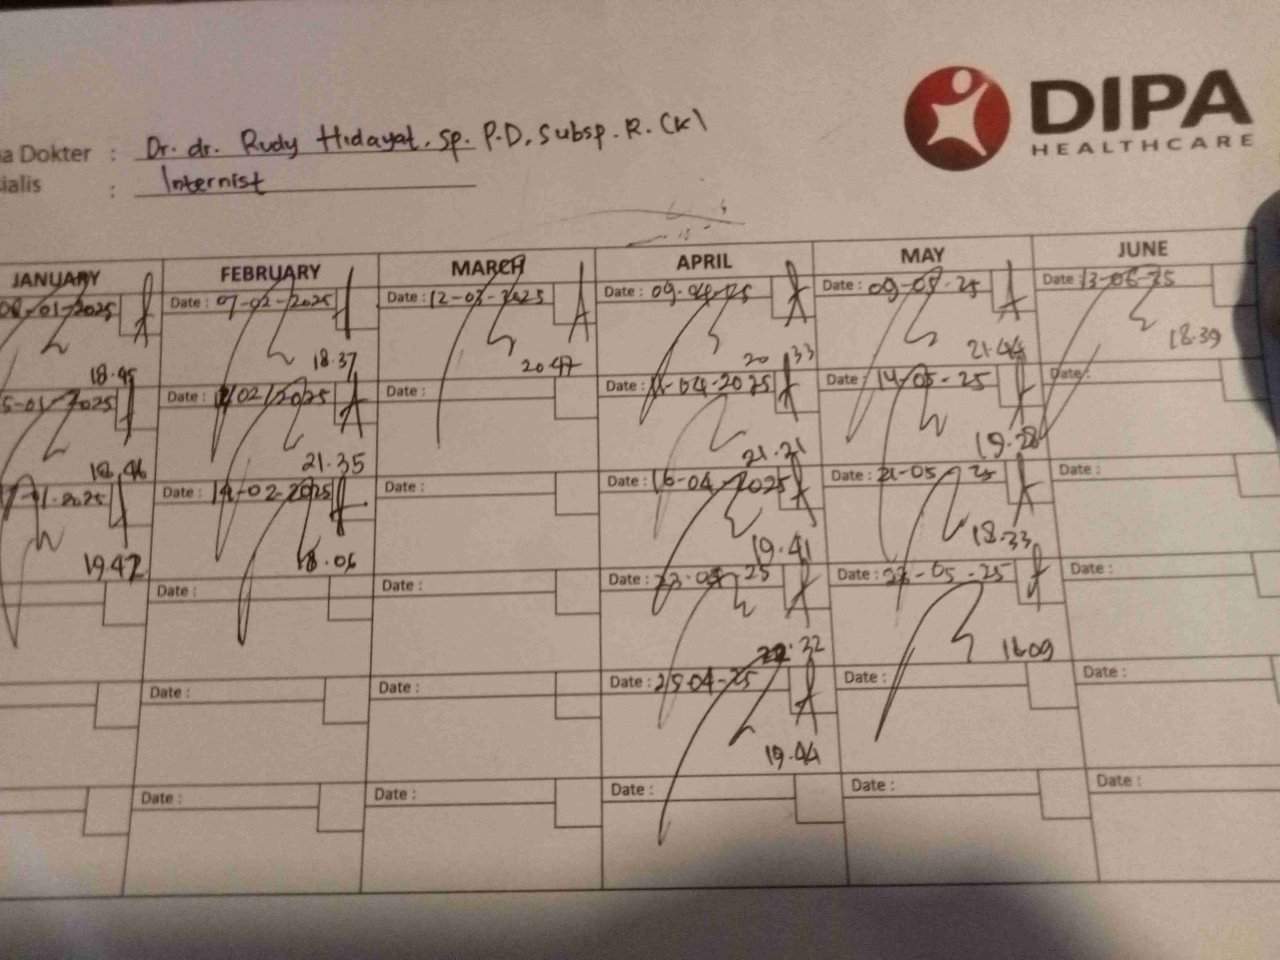 DIPA
HEALTHCARE
a Dokter : Dr. dr. Rudy Hidayat. Sp. P.D. Subsp. R. (K)
ialis : Internist
JANUARY FEBRUARY MARCH APRIL MAY JUNE
08-01-2025 Date : 07-02-2025 Date : 12-03-2025 Date : 09-04-25 Date : 09-05-25 Date : 13-06-25
18.45 18.37 20.47 20.33 21.44 18.39
5-01-2025 Date : /02/2025 Date : Date : 11-04-2025 Date : 14-05-25 Date :
18.46 21.35 21.21 19.28
1-2025 Date : 14-02-2025 Date : Date : 16-04-2025 Date : 21-05-25 Date :
19.42 18.06 19.41 18.33
Date : Date : Date : 23-04-25 Date : 23-05-25 Date :
22.32 16.09
Date : Date : Date : 25-04-25 Date : Date :
19.44
Date : Date : Date : Date : Date :